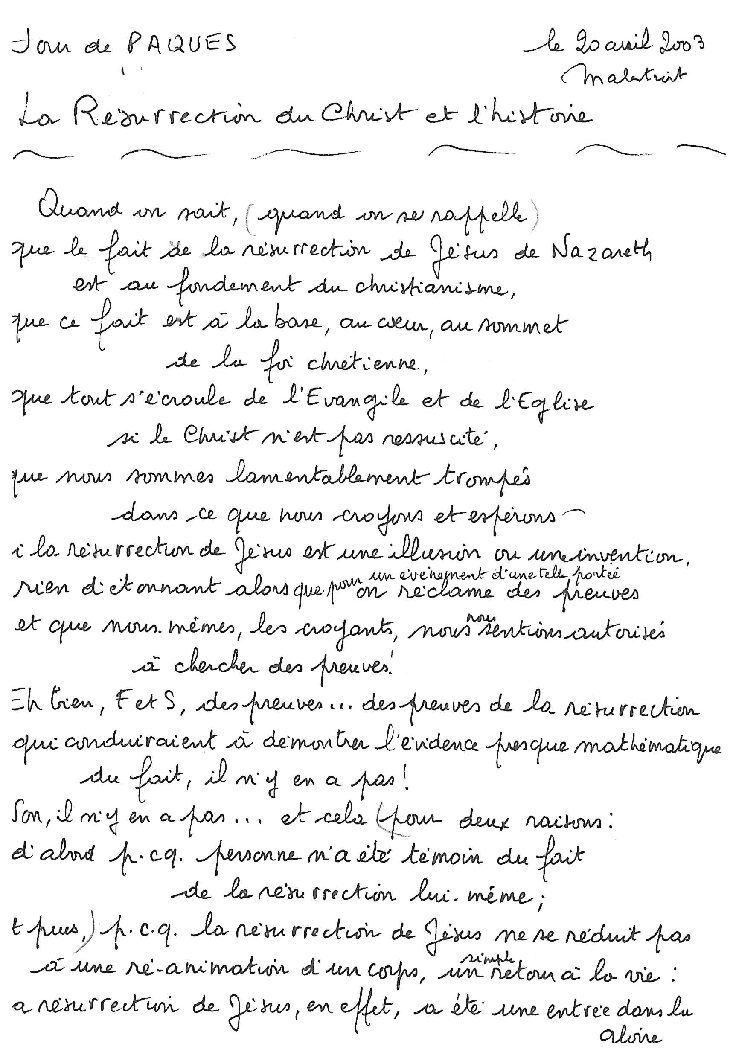 Jour de PAQUES
le 20 avril 2003
Malestroit
La Résurrection du Christ et l'histoire
Quand on sait, (quand on se rappelle)
que le fait de la résurrection de Jésus de Nazareth
est au fondement du christianisme,
que ce fait est à la base, au cœur, au sommet
de la foi chrétienne,
que tout s'écroule de l'Evangile et de l'Eglise
si le Christ n'est pas ressuscité,
que nous sommes lamentablement trompés
dans ce que nous croyons et espérons
i la résurrection de Jésus est une illusion ou une invention,
rien d'étonnant alors que pour un évènement d'une telle portée on réclame des preuves
et que nous-mêmes, les croyants, nous nous sentions autorisés
à chercher des preuves!
Eh bien, F et S, des preuves... des preuves de la résurrection
qui conduiraient à démontrer l'évidence presque mathématique
du fait, il n'y en a pas!
Non, il n'y en a pas... et cela (pour deux raisons:
d'abord p.cq. personne n'a été témoin du fait
de la résurrection lui-même;
t puis,) p.c.q. la résurrection de Jésus ne se réduit pas
à une ré-animation d'un corps, un simple retour à la vie:
a résurrection de Jésus, en effet, a été une entrée dans la
gloire